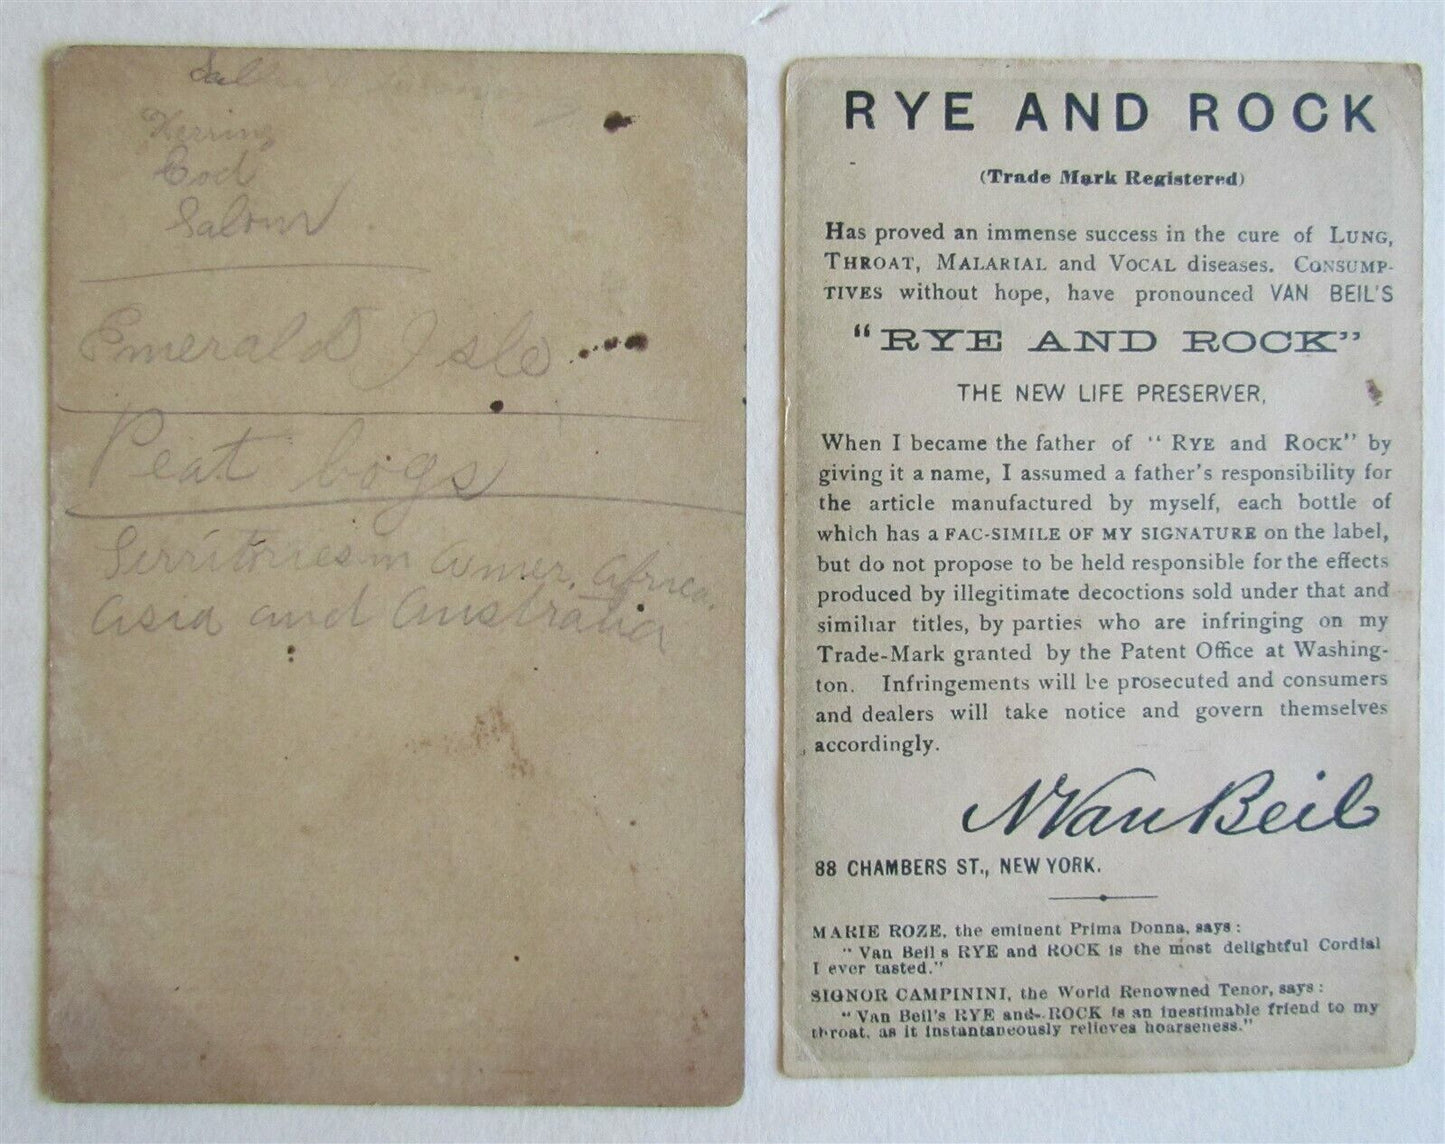 Herring
Cod
Salomr
Emerald Isle
Peat bogs
Territories in Amer. Africa.
Asia and Australia
RYE AND ROCK
(Trade Mark Registered)
Has proved an immense success in the cure of LUNG,
THROAT, MALARIAL and VOCAL diseases. CONSUMP-
TIVES without hope, have pronounced VAN BEIL'S
"RYE AND ROCK"
THE NEW LIFE PRESERVER,
When I became the father of "RYE and ROCK" by
giving it a name, I assumed a father's responsibility for
the article manufactured by myself, each bottle of
which has a FAC-SIMILE OF MY SIGNATURE on the label,
but do not propose to be held responsible for the effects
produced by illegitimate decoctions sold under that and
similiar titles, by parties who are infringing on my
Trade-Mark granted by the Patent Office at Washing-
ton. Infringements will be prosecuted and consumers
and dealers will take notice and govern themselves
accordingly.
N Van Beil
88 CHAMBERS ST., NEW YORK.
MARIE ROZE, the eminent Prima Donna, says:
"Van Beil s RYE and ROCK is the most delightful Cordial
I ever tasted."
SIGNOR CAMPININI, the World Renowned Tenor, says:
"Van Beil's RYE and ROCK is an inestimable friend to my
throat, as it instantaneously relieves hoarseness."